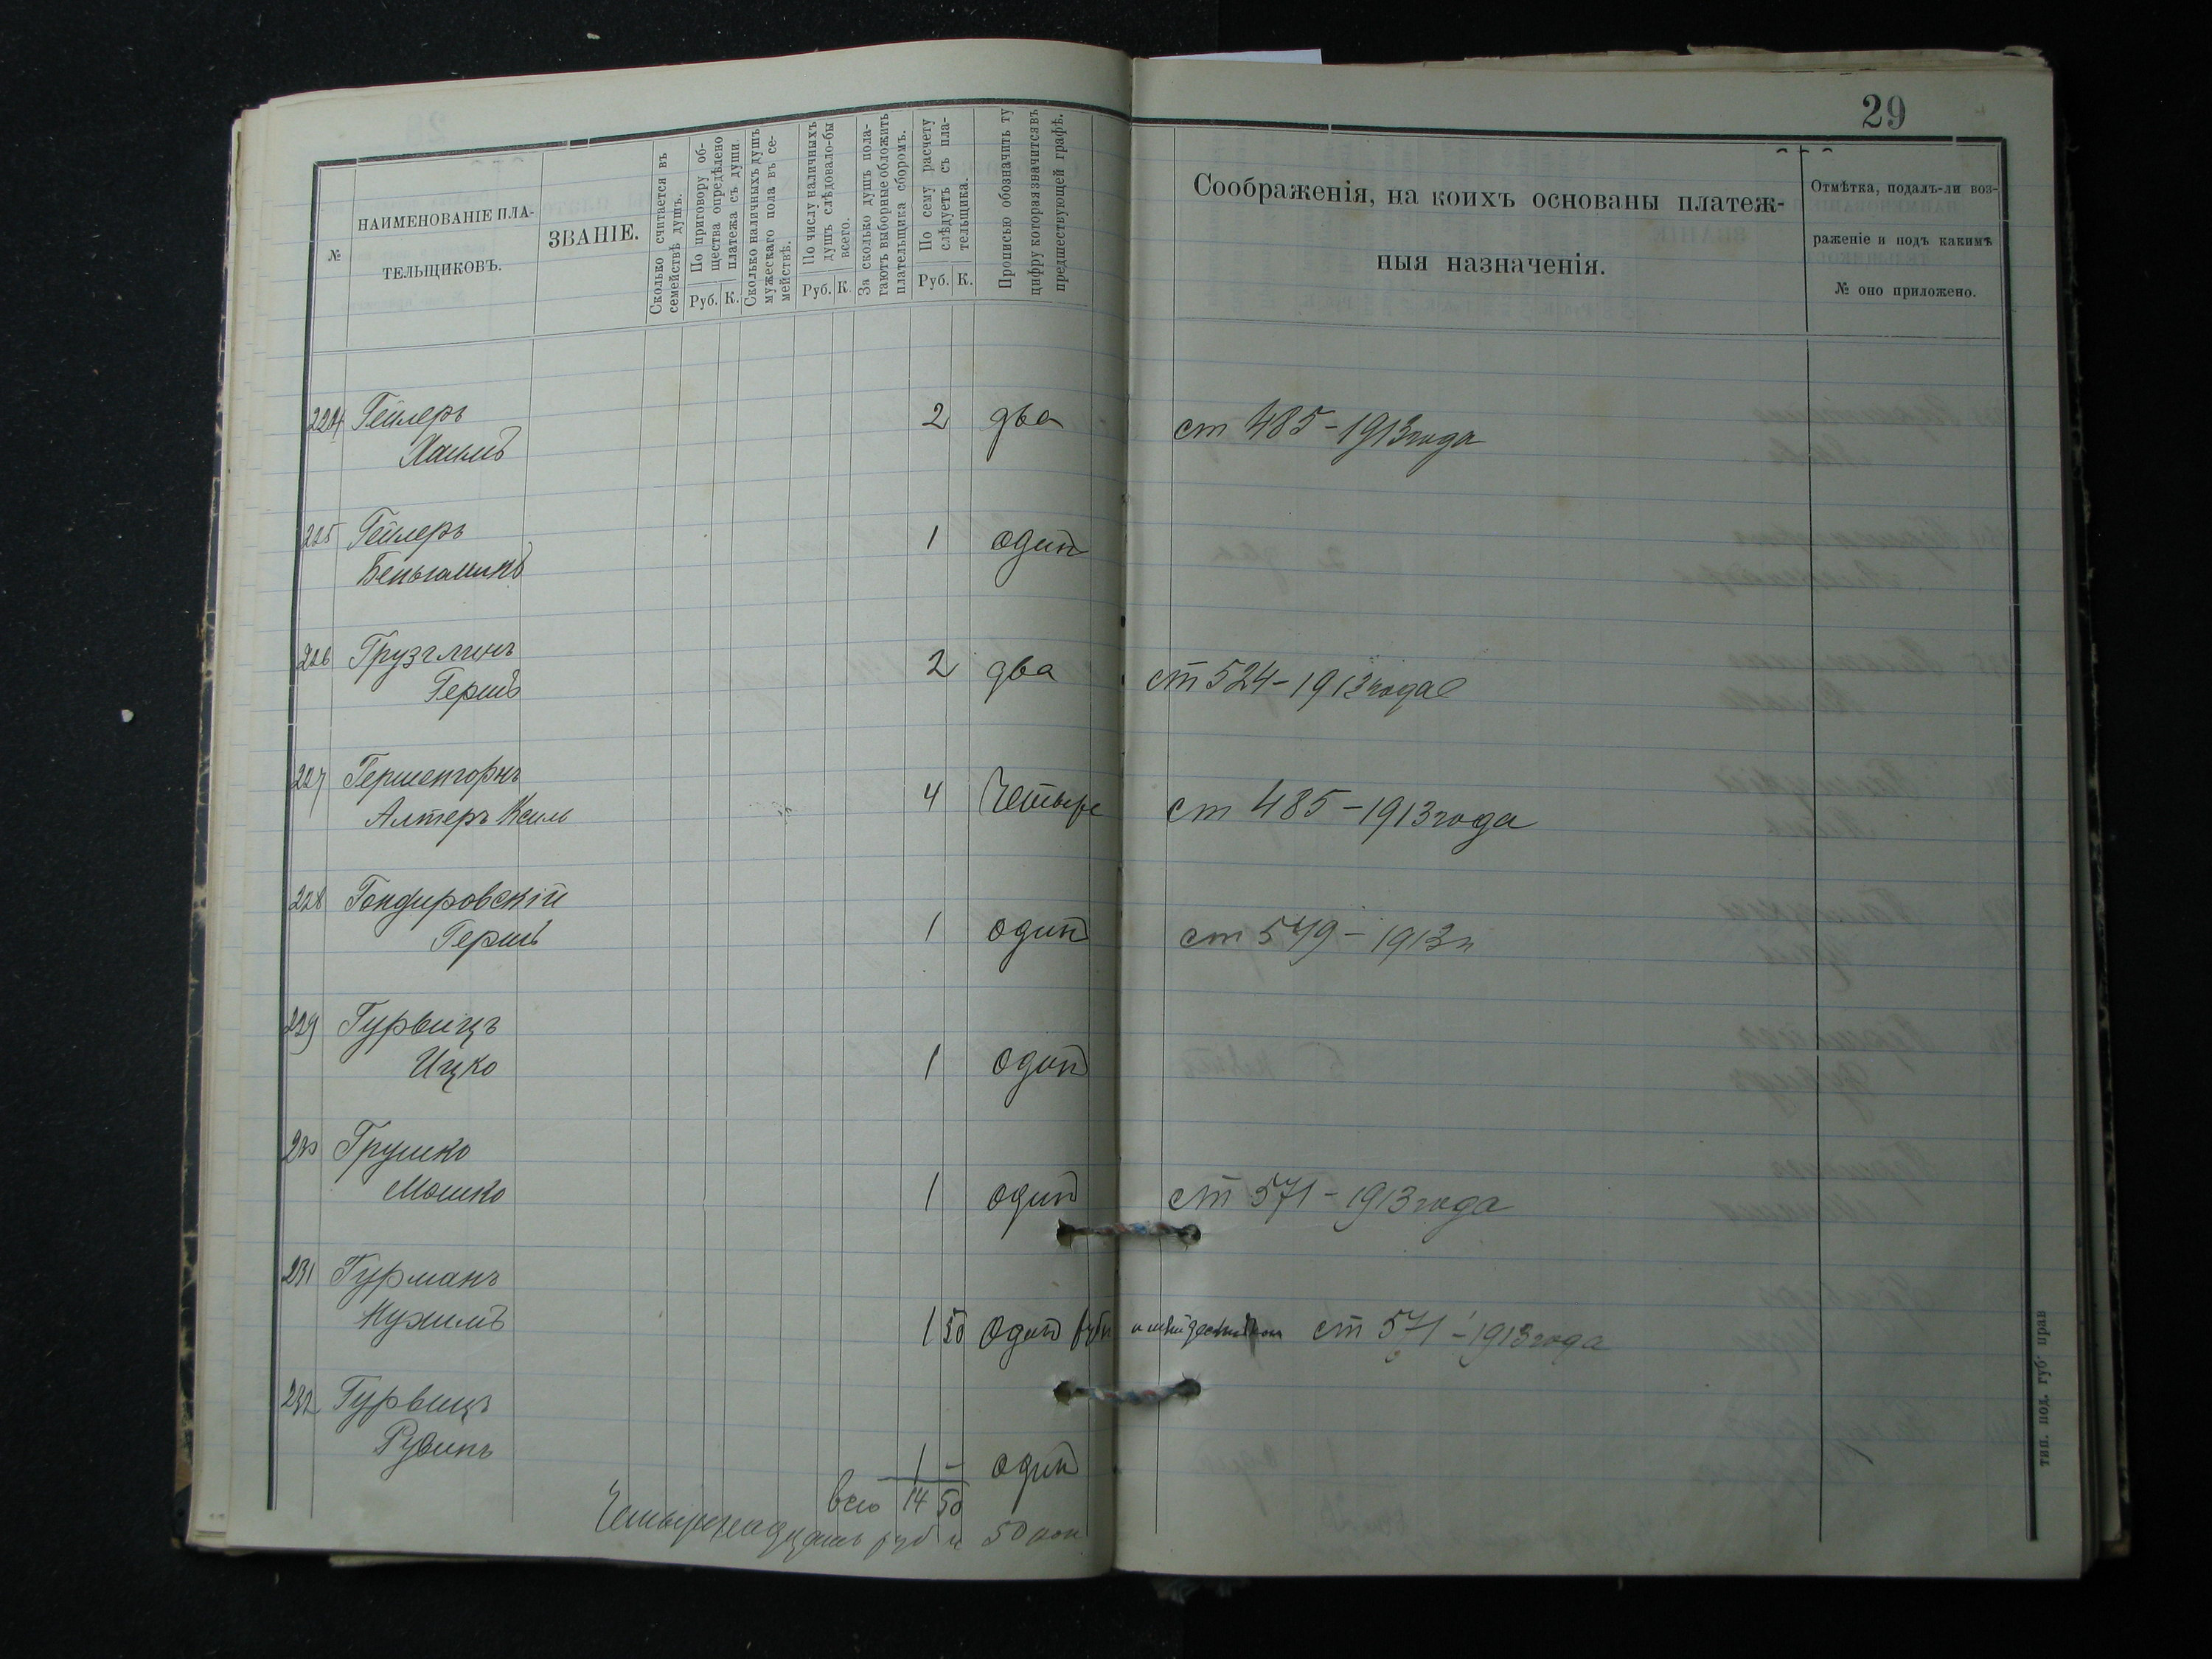 29
№
НАИМЕНОВАНІЕ ПЛА-
ТЕЛЬЩИКОВЪ.
ЗВАНІЕ.
Сколько считается въ
семействѣ душъ.
По приговору об-
щества опредѣлено
платежа съ души.
Руб. К.
Сколько наличныхъ душъ
мужескаго пола въ се-
мействѣ.
По числу наличныхъ
душъ слѣдовало-бы
всего.
Руб. К.
За сколько душъ пола-
гаютъ выборные обложить
плательщика сборомъ.
По сему расчету
слѣдуетъ съ пла-
тельщика.
Руб. К.
Прописью обозначить ту
цифру которая значится въ
предшествующей графѣ.
Соображенія, на коихъ основаны платеж-
ныя назначенія.
Отмѣтка, подалъ-ли воз-
раженіе и подъ какимъ
№ оно приложено.
224 Гейлеръ
Хаимъ 2 два ст 485 - 1913 года
225 Гейлеръ
Беньяминъ 1 один
226 Грузглинъ
Гершъ 2 два ст 524 - 1913 года
227 Гершенгорнъ
Алтеръ Ксиль 4 Четыре ст 485 - 1913 года
228 Гондировскій
Гершъ 1 один ст 549 - 1913 г
229 Гурвицъ
Ицко 1 один
230 Грушко
Мошко 1 один ст 571 - 1913 года
231 Гурманъ
Нухимъ 1 50 Один руб и пятьдесят коп ст 571 - 1913 года
232 Гурвицъ
Рувинъ 1 - один
всего 14 50
Четырнадцать руб и 50 коп
тип. под. губ. прав